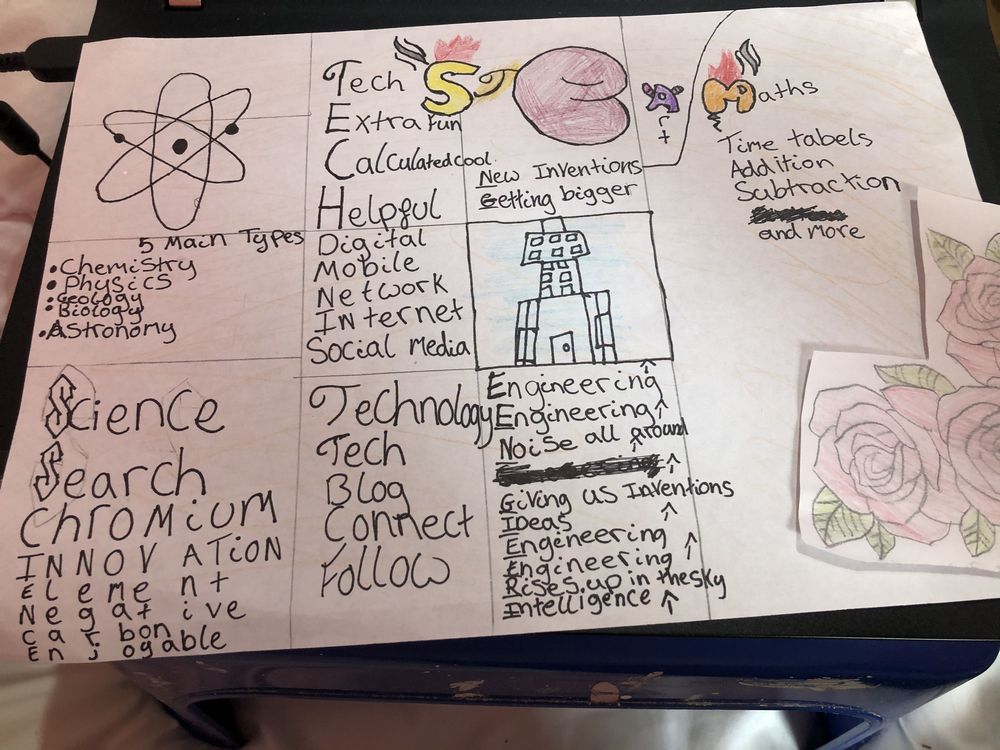 STEAM
Maths
Art
Time tabels
Addition
Subtraction
and more
5 Main Types
Chemistry
Physics
Geology
Biology
Astronomy
Science
Search
Chromium
INNOVATION
Element
Negative
carbon
Enjogable
Tech
Extra fun
Calculated cool
Helpful
Digital
Mobile
Network
INternet
Social Media
Technology
Tech
Blog
Connect
Follow
New Inventions
Getting bigger
Engineering
Engineering
Noise all around
Giving us Inventions
Ideas
Engineering
Engineering
Rises up in the sky
Intelligence